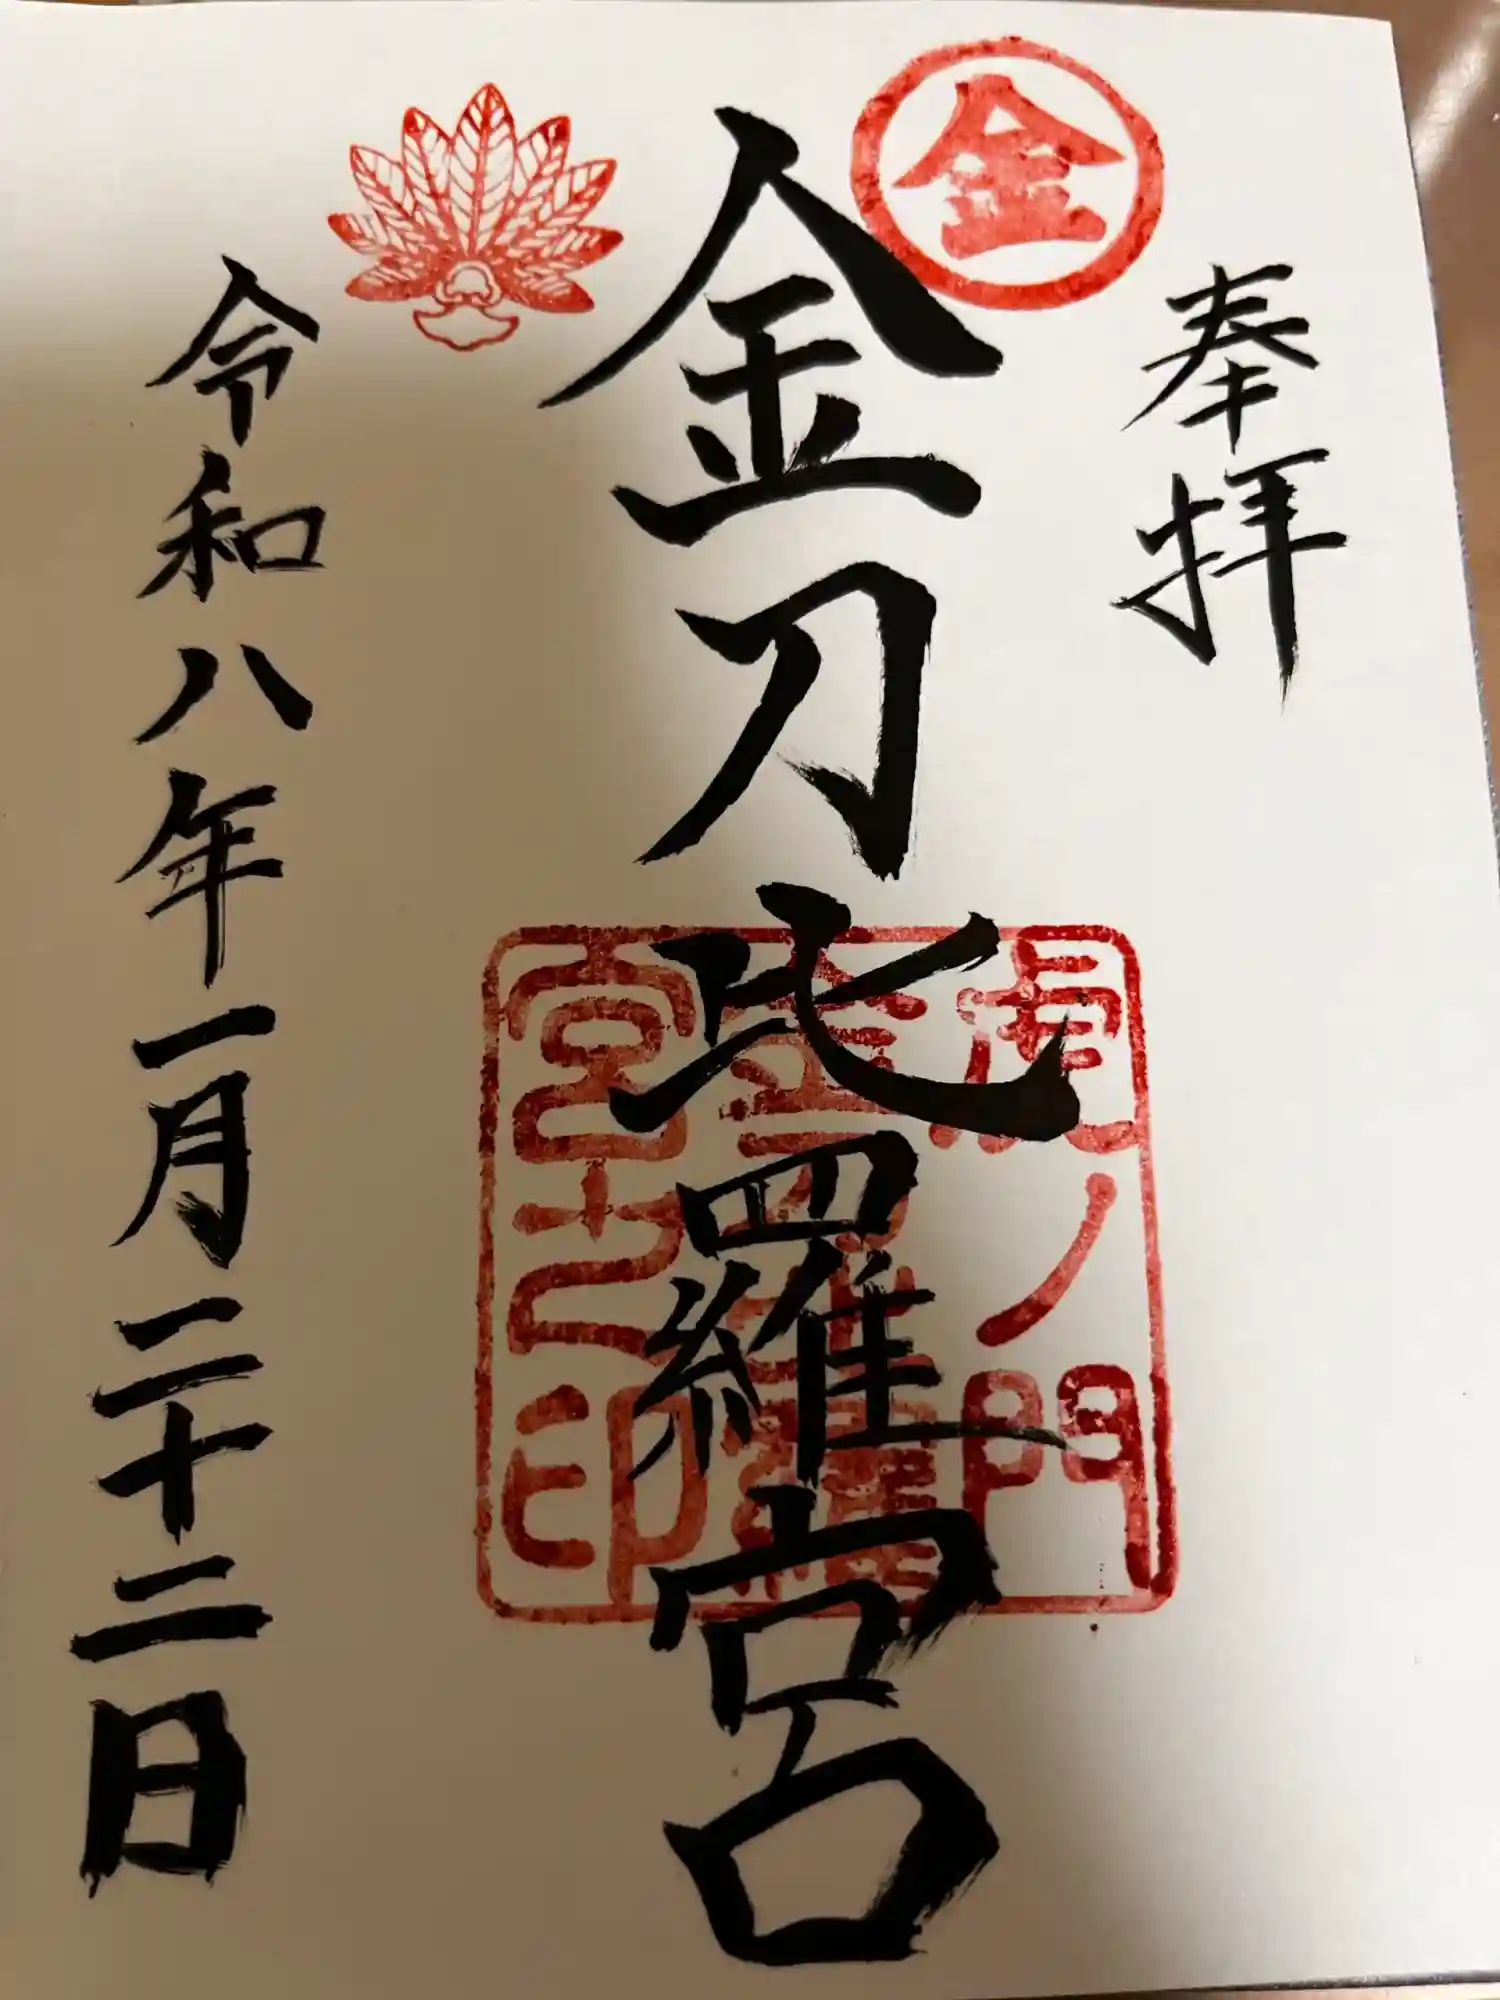 奉拝
金
金刀比羅宮
虎ノ門
金刀比羅
宮之印
令和八年一月二十二日